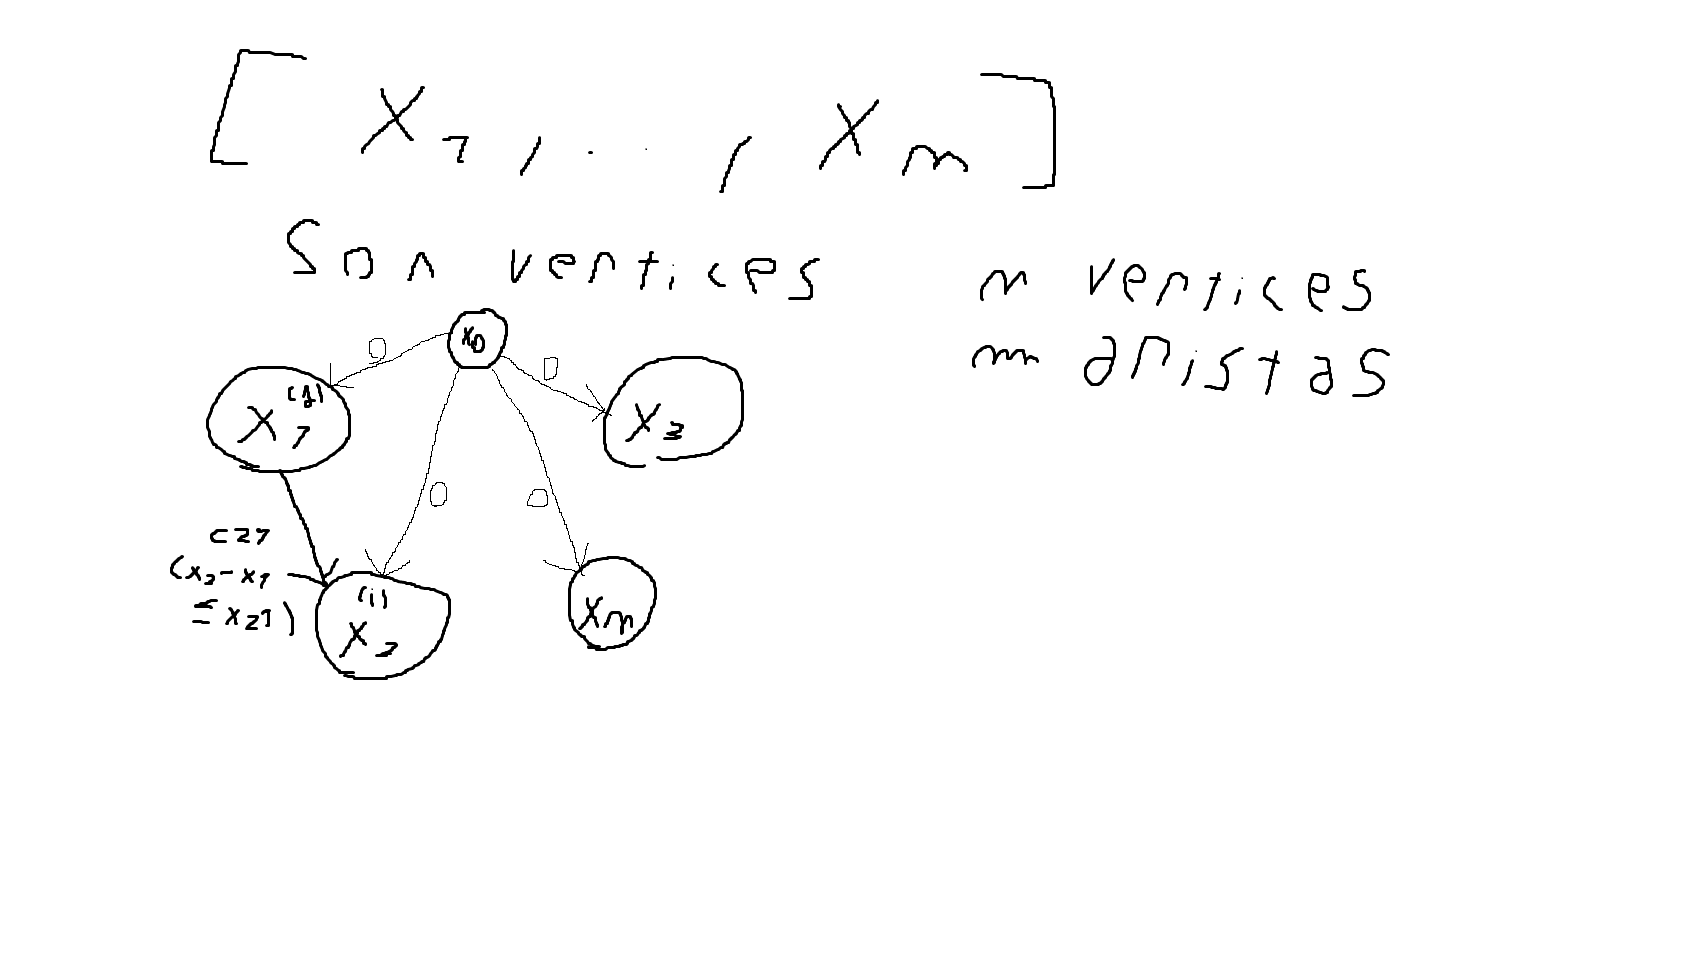 [ X1, . . , Xn ]
Son vertices
n vertices
m aristas
x0
0
0
(j)
X1
X3
0
0
c21
(x2-x1
≤x21)
(i)
X2
Xn